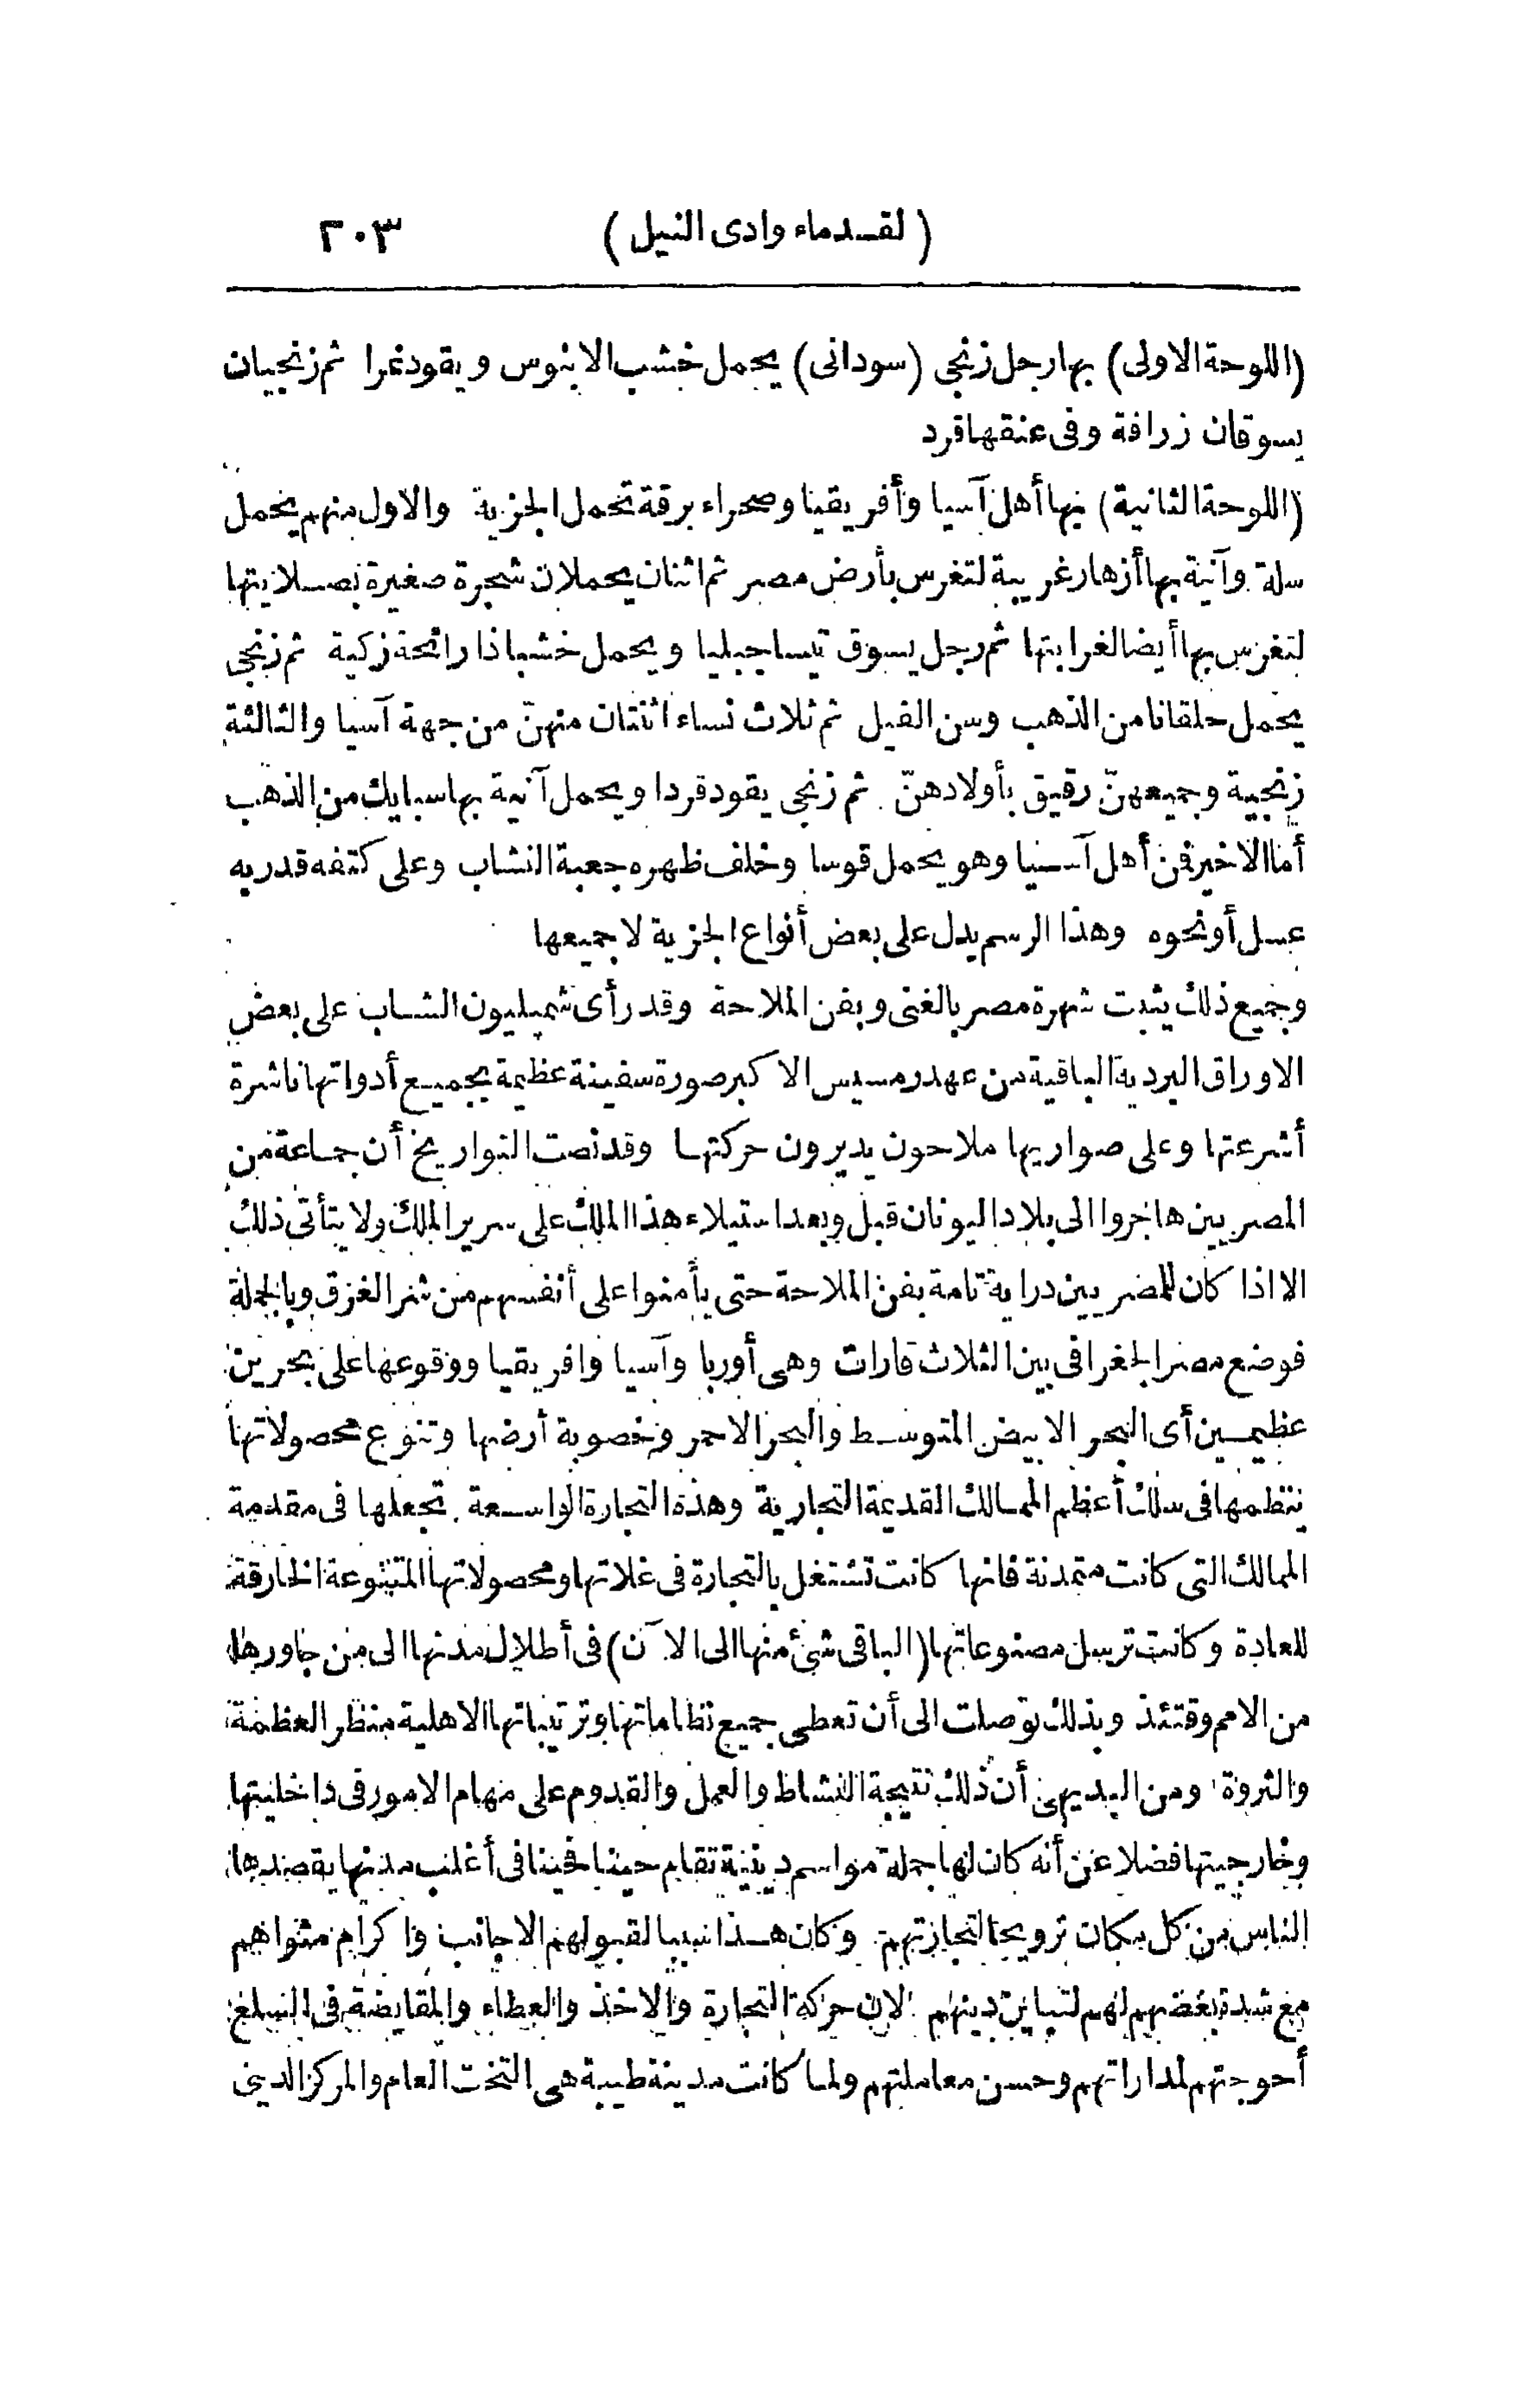 (لقدماء وادى النيل) ٢٠٣
(اللوحة الاولى) بها رجل زنجى (سودانى) يحمل خشب الابنوس ويقود نمرا ثم زنجيان
يسوقان زرافة وفى عنقها قرد
(اللوحة الثانية) فيها أهل آسيا وأفريقيا وصحراء برقة تحمل الجزية والاول منهم يحمل
سلة وآنية بها أزهار غريبة لتغرس بأرض مصر ثم اثنان يحملان شجرة صغيرة بصلايتها
لتغرس بها أيضا لغرابتها ثم رجل يسوق تيسا جبليا ويحمل خشبا ذا رائحة زكية ثم زنجى
يحمل حلقانا من الذهب وسن الفيل ثم ثلاث نساء اثنتان منهنّ من جهة آسيا والثالثة
زنجية وجميعهنّ رقيق بأولادهنّ ثم زنجى يقود قردا ويحمل آنية بها سبايك من الذهب
أما الاخير فمن أهل آسيا وهو يحمل قوسا وخلف ظهره جعبة النشاب وعلى كتفه قدر به
عسل أو نحوه وهذا الرسم يدل على بعض أنواع الجزية لا جميعها
وجميع ذلك يثبت شهرة مصر بالغنى وبفن الملاحة وقد رأى شمبليون الشاب على بعض
الاوراق البردية الباقية من عهد رمسيس الاكبر صورة سفينة عظيمة بجميع أدواتها ناشرة
أشرعتها وعلى صواريها ملاحون يديرون حركتها وقد نصت التواريخ أن جماعة من
المصريين هاجروا الى بلاد اليونان قبل وبعد استيلاء هذا الملك على سرير الملك ولا يتأتى ذلك
الا اذا كان للمصريين دراية تامة بفن الملاحة حتى يأمنوا على أنفسهم من شر الغرق وبالجملة
فوضع مصر الجغرافى بين الثلاث قارات وهى أوربا وآسيا وافريقيا ووقوعها على بحرين
عظيمين أى البحر الابيض المتوسط والبحر الاحمر وخصوبة أرضها وتنوع محصولاتها
ينظمها فى سلك أعظم الممالك القديمة التجارية وهذه التجارة الواسعة تجعلها فى مقدمة
الممالك التى كانت متمدنة فانها كانت تشتغل بالتجارة فى غلاتها ومحصولاتها المتنوعة الخارقة
للعادة وكانت ترسل مصنوعاتها (الباقى شئ منها الى الآن) فى أطلال مدنها الى من جاورها
من الامم وقتئذ وبذلك توصلت الى أن تعطى جميع نظاماتها وترتيباتها الاهلية منظر العظمة
والثروة ومن البديهى أن ذلك نتيجة النشاط والعمل والقدوم على مهام الامور فى داخليتها
وخارجيتها فضلا عن أنه كان لها جملة مواسم دينية تقام حينا فحينا فى أغلب مدنها يقصدها
الناس من كل مكان ترويجا لتجارتهم وكان هذا سببا لقبولهم الاجانب واكرام مثواهم
مع شدة بغضهم لهم لتباين دينهم لان حركة التجارة والاخذ والعطاء والمقايضة فى السلع
أحوجتهم لمداراتهم وحسن معاملتهم ولما كانت مدينة طيبة هى التخت العام والمركز الدينى